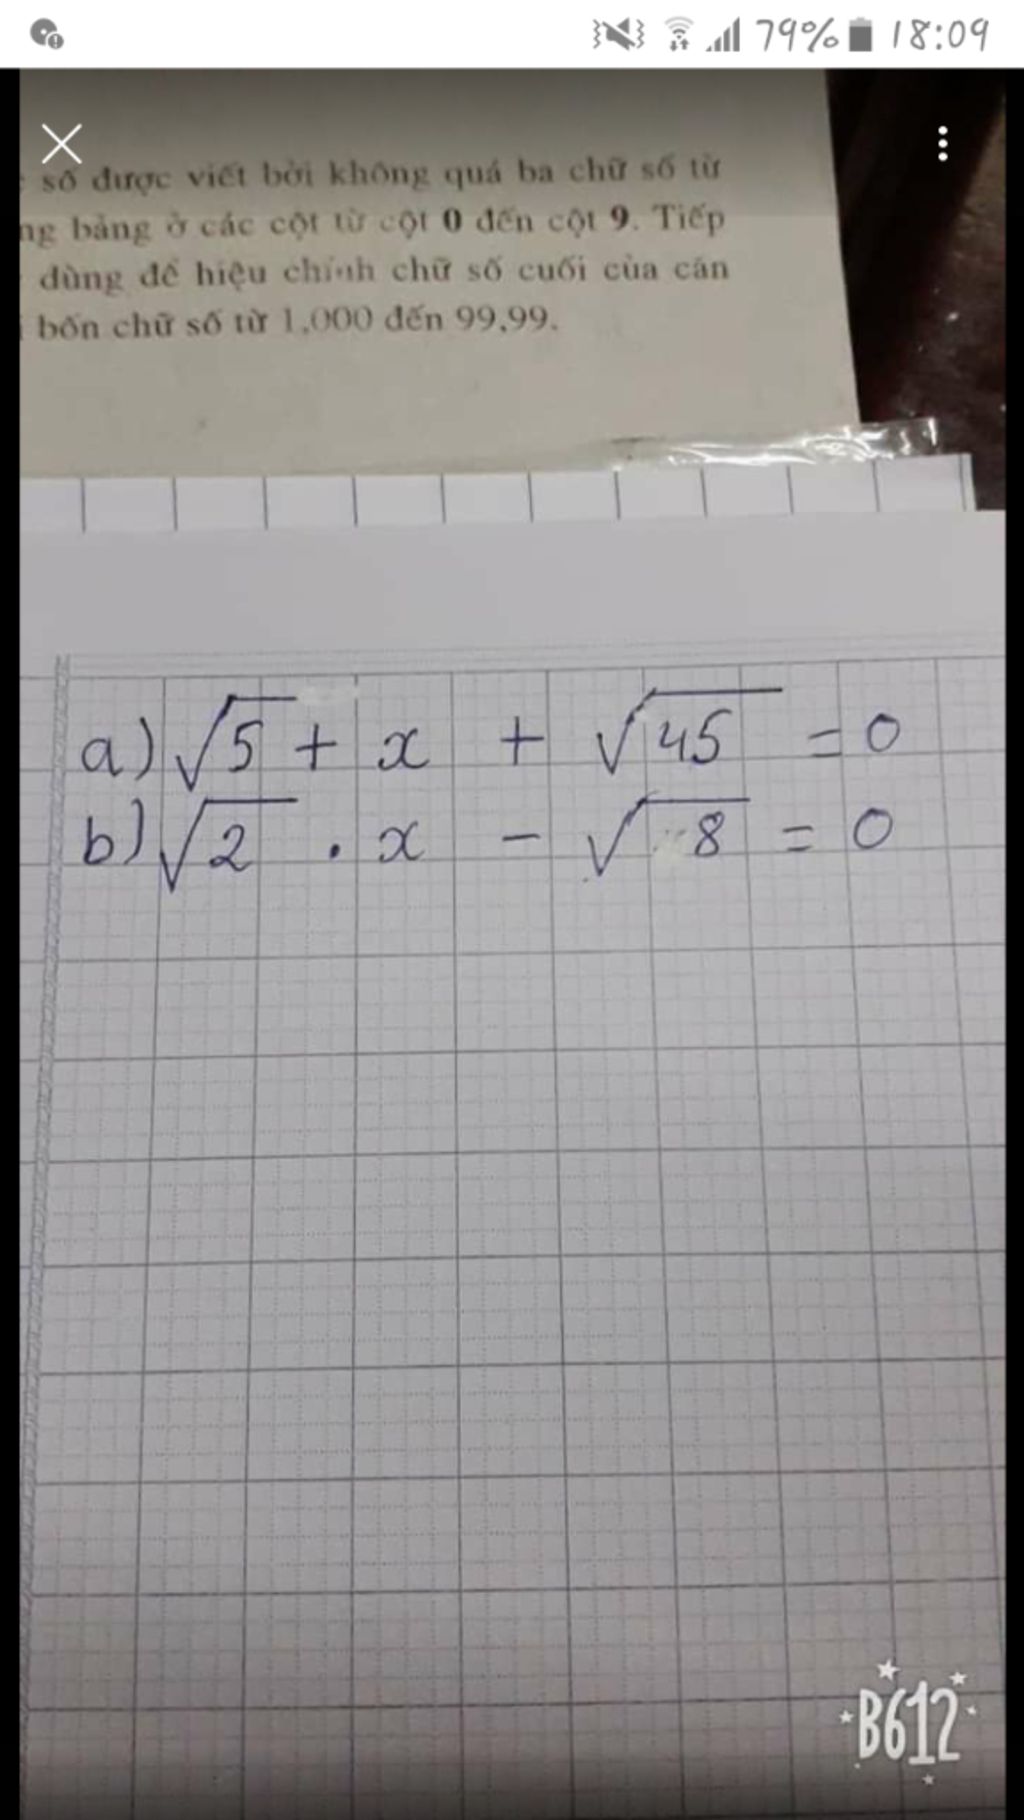 79% 18:09
số được viết bởi không quá ba chữ số từ
ng bảng ở các cột từ cột 0 đến cột 9. Tiếp
dùng để hiệu chính chữ số cuối của căn
bốn chữ số từ 1,000 đến 99,99.
a) √5 + x + √45 = 0
b) √2 . x - √8 = 0
B612